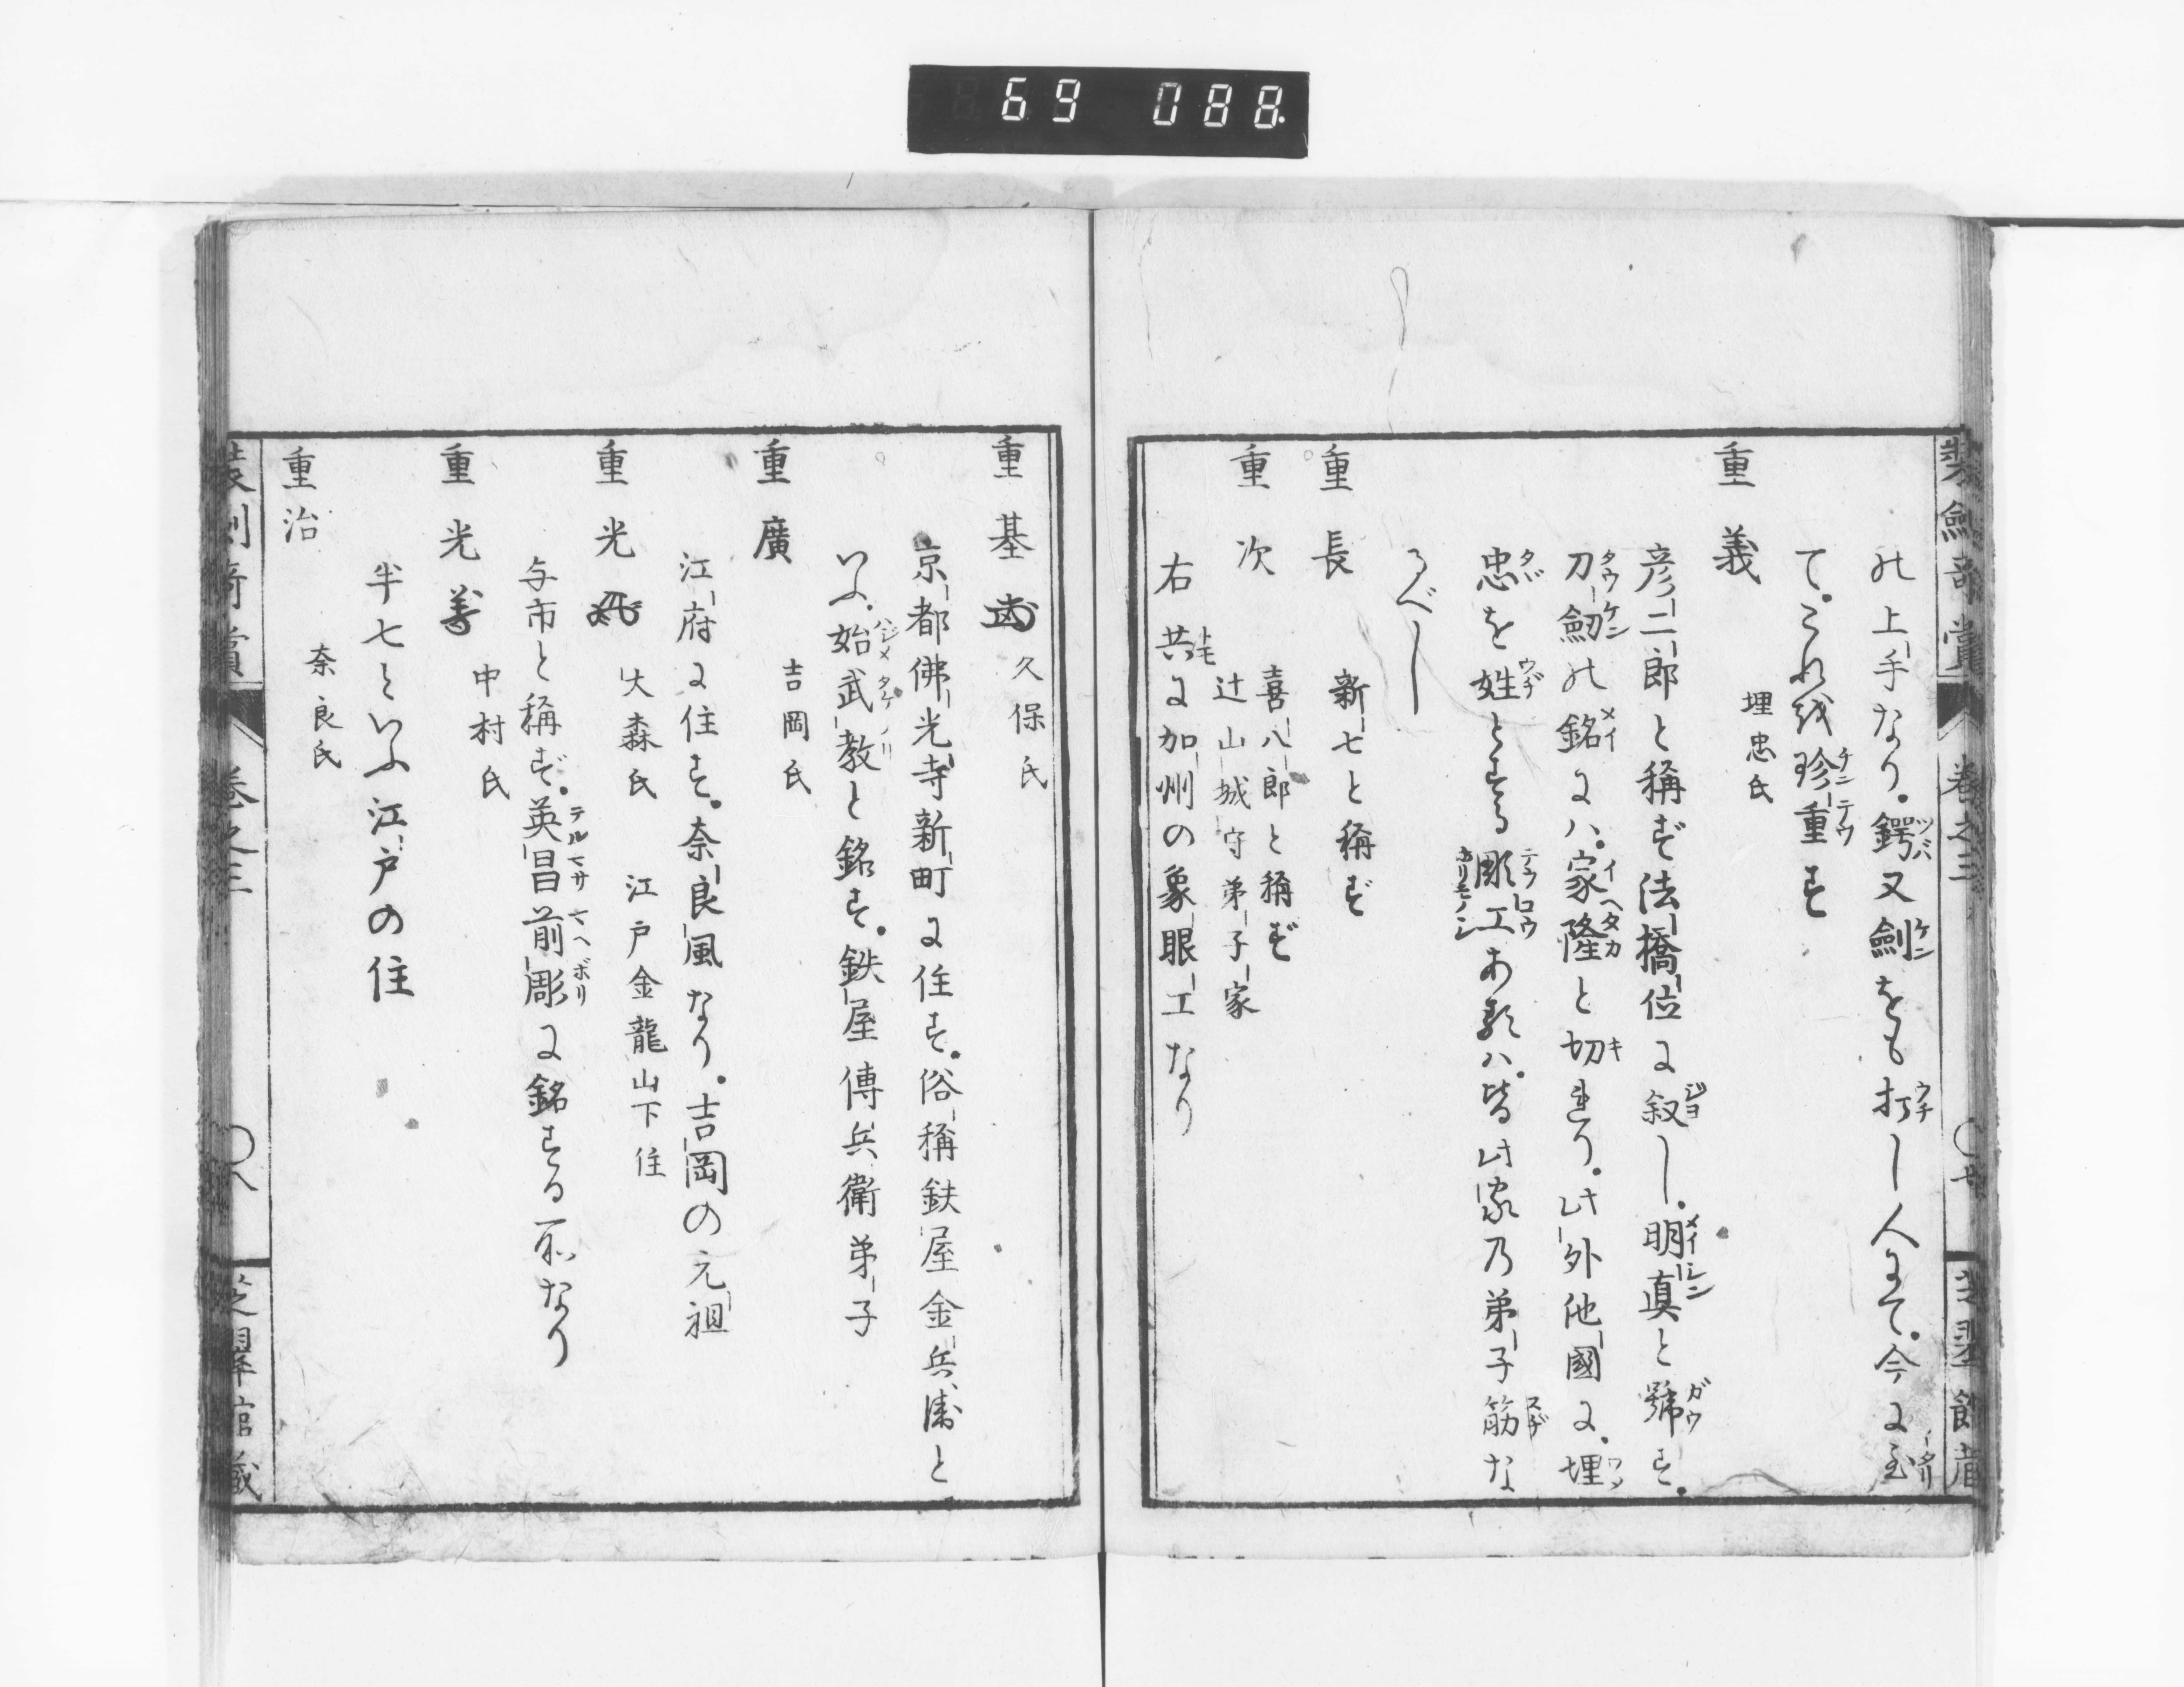 69 088
装劍奇賞
巻之三
の上手なり。鍔又劍をも打し人にて。今に至
て。これを珍重す
重義
埋忠氏
彦二郎と稱ず法橋位に叙し。明真と號す。
刀劒の銘には。家隆と切れり。此外他國に。埋
忠を姓とする彫工あるは。皆此家乃弟子筋な
るべし
重長
新七と稱ず
重次
喜八郎と稱ず
辻山城守弟子家
右共に加州の象眼工なり
重基
久保氏
京都佛光寺新町に住す。俗稱鉄屋金兵衛と
いふ。始武教と銘す。鉄屋傳兵衛弟子
重廣
吉岡氏
江府に住す。奈良風なり。吉岡の元祖
重光
大森氏 江戸金龍山下住
与市と稱ず。英昌前彫に銘する所なり
重光
中村氏
半七といふ江戸の住
重治
奈良氏
巻之三